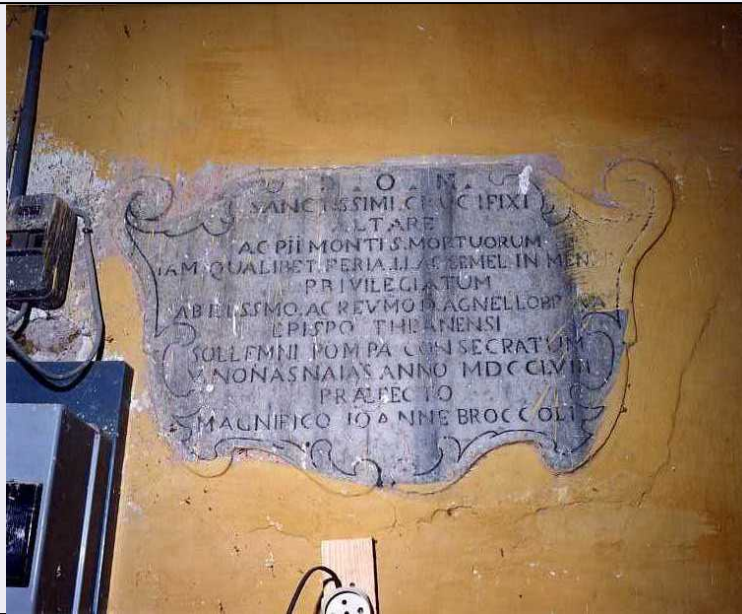 D. O. M.
SANCTISSIMI CRUCIFIXI
ALTARE
AC PII MONTIS MORTUORUM
IAM QUALIBET FERIA II AC SEMEL IN
PRIVILEGIATUM
AC REVMO D. AGNELLO
EPISPO THEANENSI
SOLLEMNI POMPA CONSECRATUM
V NONAS NAIAS ANNO MDCCLVIII
PRÆFECTO
MAGNIFICO IOANNE BROCCOLI